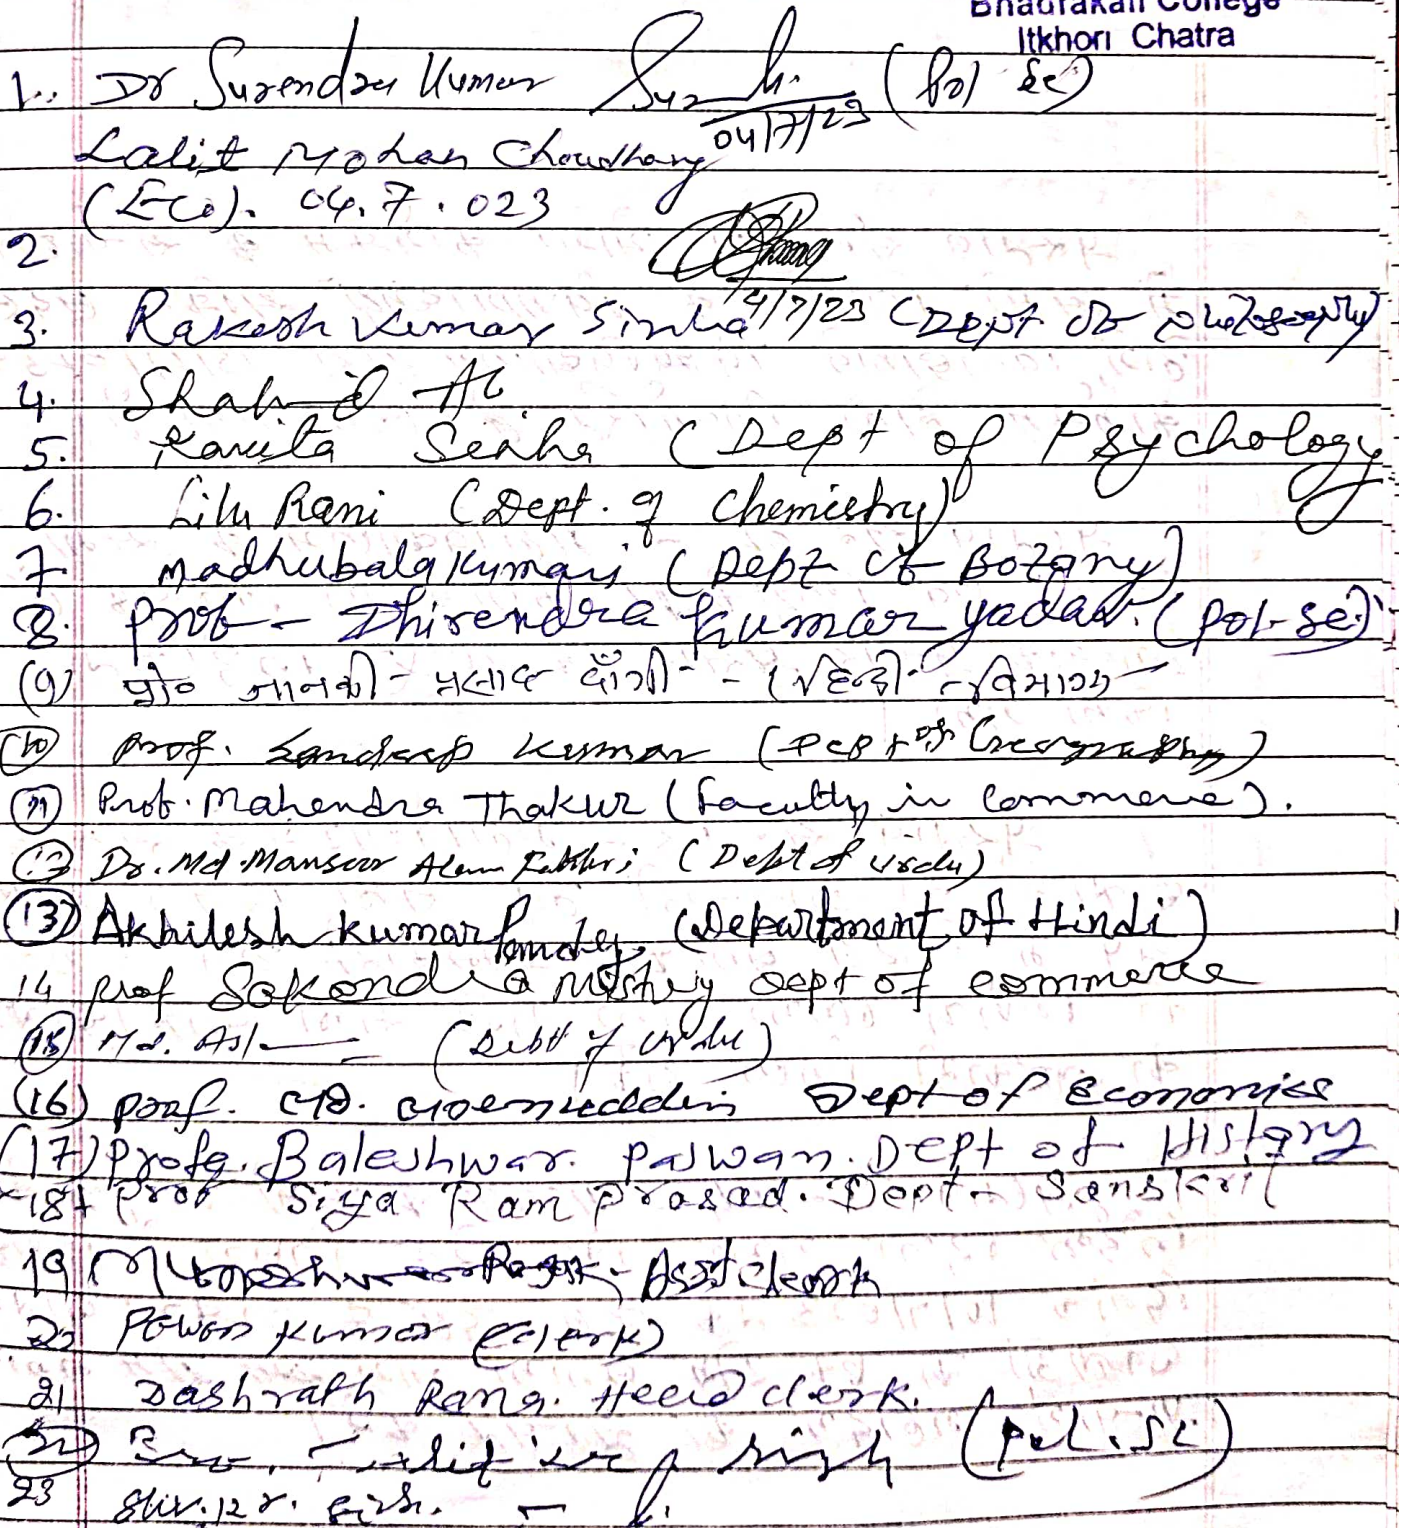 Bhadrakali College
Itkhori Chatra
1. Dr Surendra Kumar (Pol Sc)
04/7/23
Lalit Mohan Choudhary
(Eco). 04.7.023
2.
4/7/23
3. Rakesh Kumar Sinha (Dept of philosophy)
4. Shahid
5. Kavita Senha (Dept of Psychology
6. Lilu Rani (Dept. of Chemistry)
7. Madhubala Kumari (Dept of Botany)
8. Prof - Dhirendra Kumar yadav. (Pol-Sc)
(9) प्रो० जानकी - प्रसाद दाँगी - (हिन्दी - विभाग)
(10) Prof. Sandeep Kumar (Dept of Geography)
(11) Prof. Mahendra Thakur (Faculty in Commerce).
(12) Dr. Md. Mansoor Alam Fakhri (Dept of Urdu)
(13) Akhilesh Kumar Pandey, (Department of Hindi)
14 Prof Sokendra Mistry Dept of Commerce
(15) Md. (Dept of Urdu)
(16) Prof. Md. Moenuddin Dept of Economics
(17) Prof. Baleshwar Paswan. Dept of History
18 Prof Siya Ram Prasad. Dept - Sanskrit
19 Muneshwar - Asst clerk
20 Pawan Kumar (Clerk)
21 Dashrath Rana. Head clerk.
22 Singh (Pol. Sc)
23